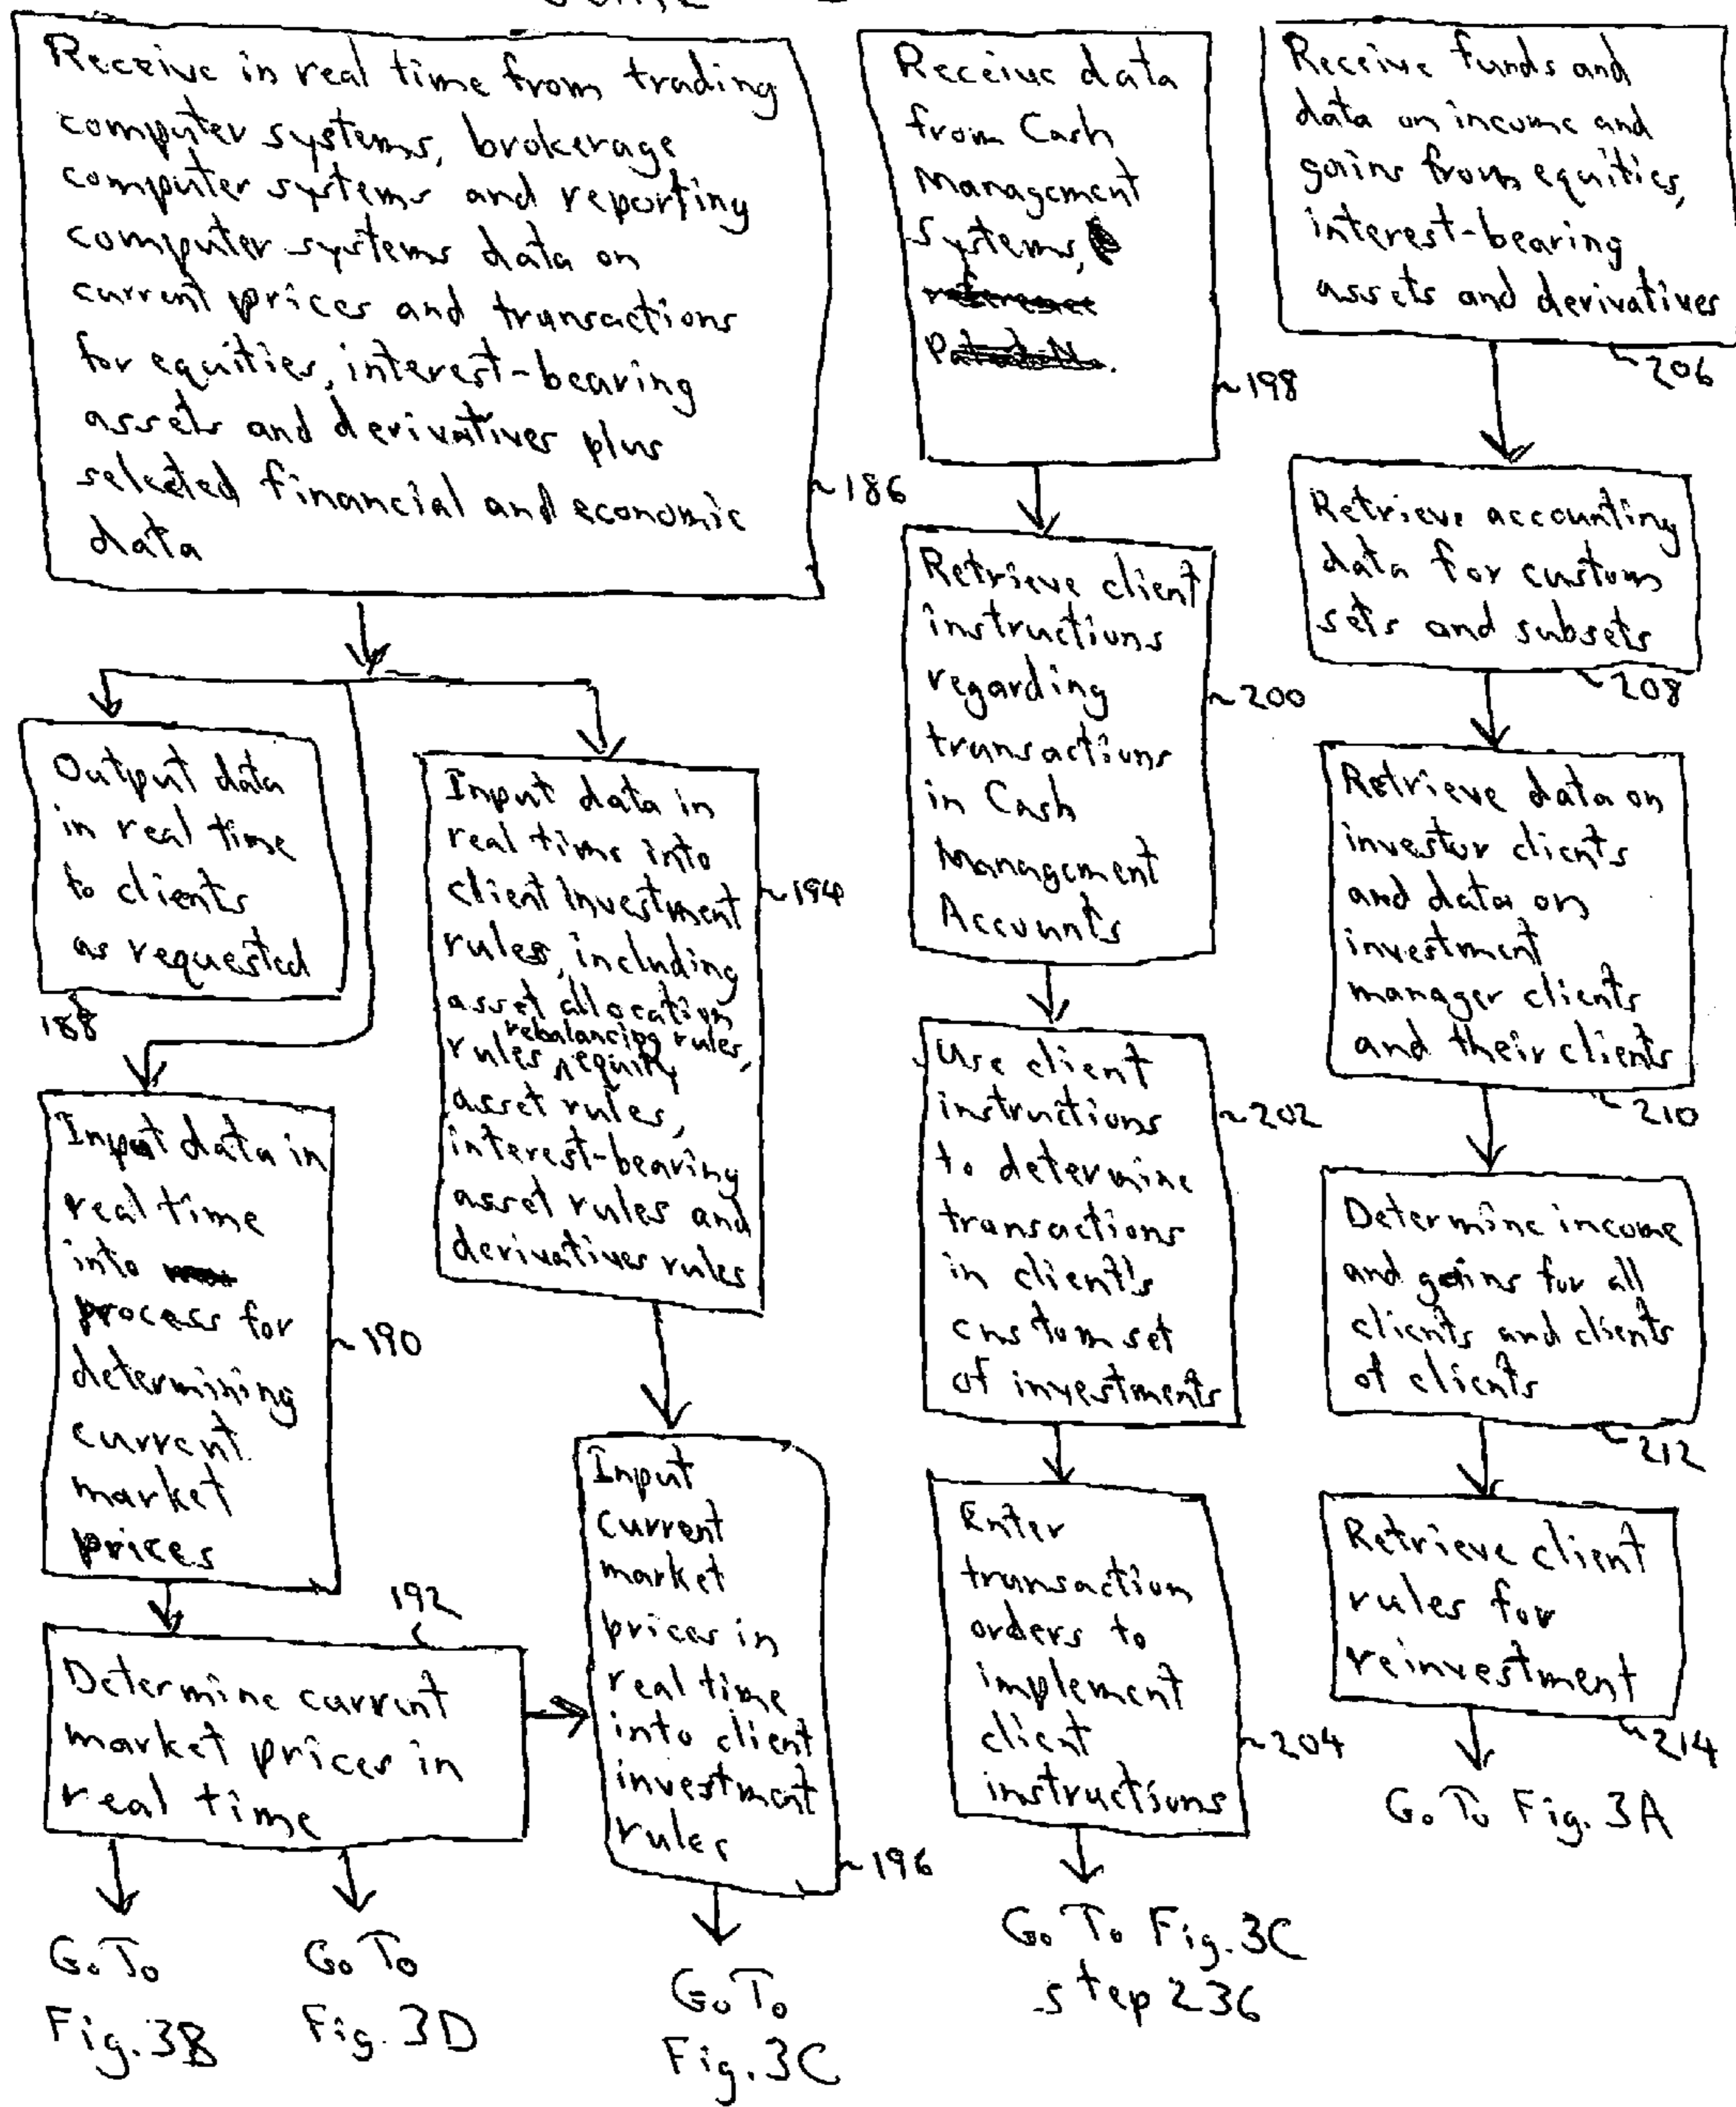 Receive in real time from trading
computer systems, brokerage
computer systems and reporting
computer systems data on
current prices and transactions
for equities, interest-bearing
assets and derivatives plus
selected financial and economic
data
~186
Output data
in real time
to clients
as requested
188
Input data in
real time
into
process for
determining
current
market
prices
~190
192
Determine current
market prices in
real time
Go To
Fig. 3B
Go To
Fig. 3D
Input data in
real time into
client investment
rules, including
asset allocation
rebalancing rules,
rules, equity
asset rules,
interest-bearing
asset rules and
derivatives rules
~194
Input
current
market
prices in
real time
into client
investment
rules
~196
Go To
Fig. 3C
Receive data
from Cash
Management
Systems,
reference
~198
Retrieve client
instructions
regarding
transactions
in Cash
Management
Accounts
~200
Use client
instructions
to determine
transactions
in client's
custom set
of investments
~202
Enter
transaction
orders to
implement
client
instructions
~204
Go To Fig. 3C
step 236
Receive funds and
data on income and
gains from equities,
interest-bearing
assets and derivatives
~206
Retrieve accounting
data for custom
sets and subsets
~208
Retrieve data on
investor clients
and data on
investment
manager clients
and their clients
~210
Determine income
and gains for all
clients and clients
of clients
~212
Retrieve client
rules for
reinvestment
~214
Go To Fig. 3A